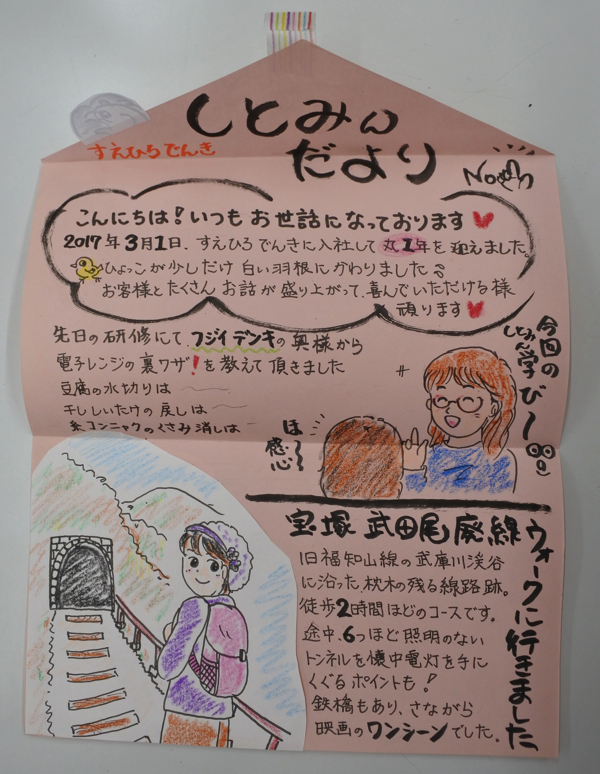 しとみん
だより
すえひろでんき
こんにちは!いつもお世話になっております
2017年3月1日、すえひろでんきに入社して丸1年を迎えました。
ひよこが少しだけ白い羽根にかわりました
お客様とたくさんお話が盛り上がって、喜んでいただける様
頑ります
先日の研修にてフジイデンキの奥様から
電子レンジの裏ワザ!を教えて頂きました
豆腐の水切りは
干ししいたけの戻しは
糸コンニャクのくさみ消しは
今回の
しとみん学び~
ほ~
感心
宝塚 武田尾廃線
ウォークに行きました
旧福知山線の武庫川渓谷
に沿った、枕木の残る線路跡。
徒歩2時間ほどのコースです。
途中、6つほど照明のない
トンネルを懐中電灯を手に
くぐるポイントも!
鉄橋もあり、さながら
映画のワンシーンでした。